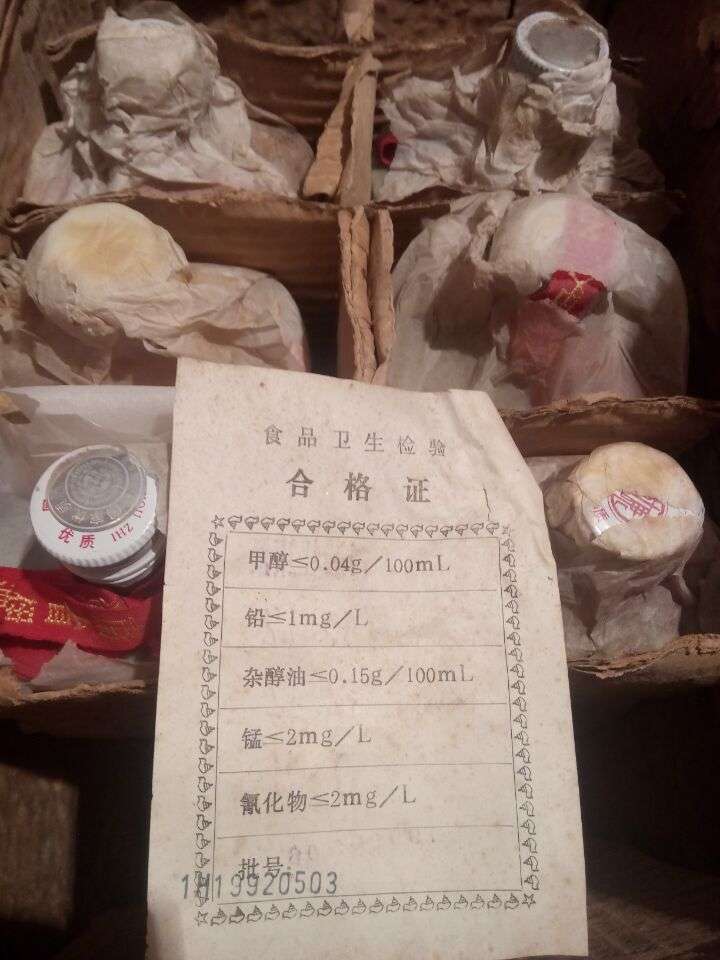 食品卫生检验
合格证
甲醇≤0.04g/100mL
铅≤1mg/L
杂醇油≤0.15g/100mL
锰≤2mg/L
氰化物≤2mg/L
批号:
1H19920503
优质